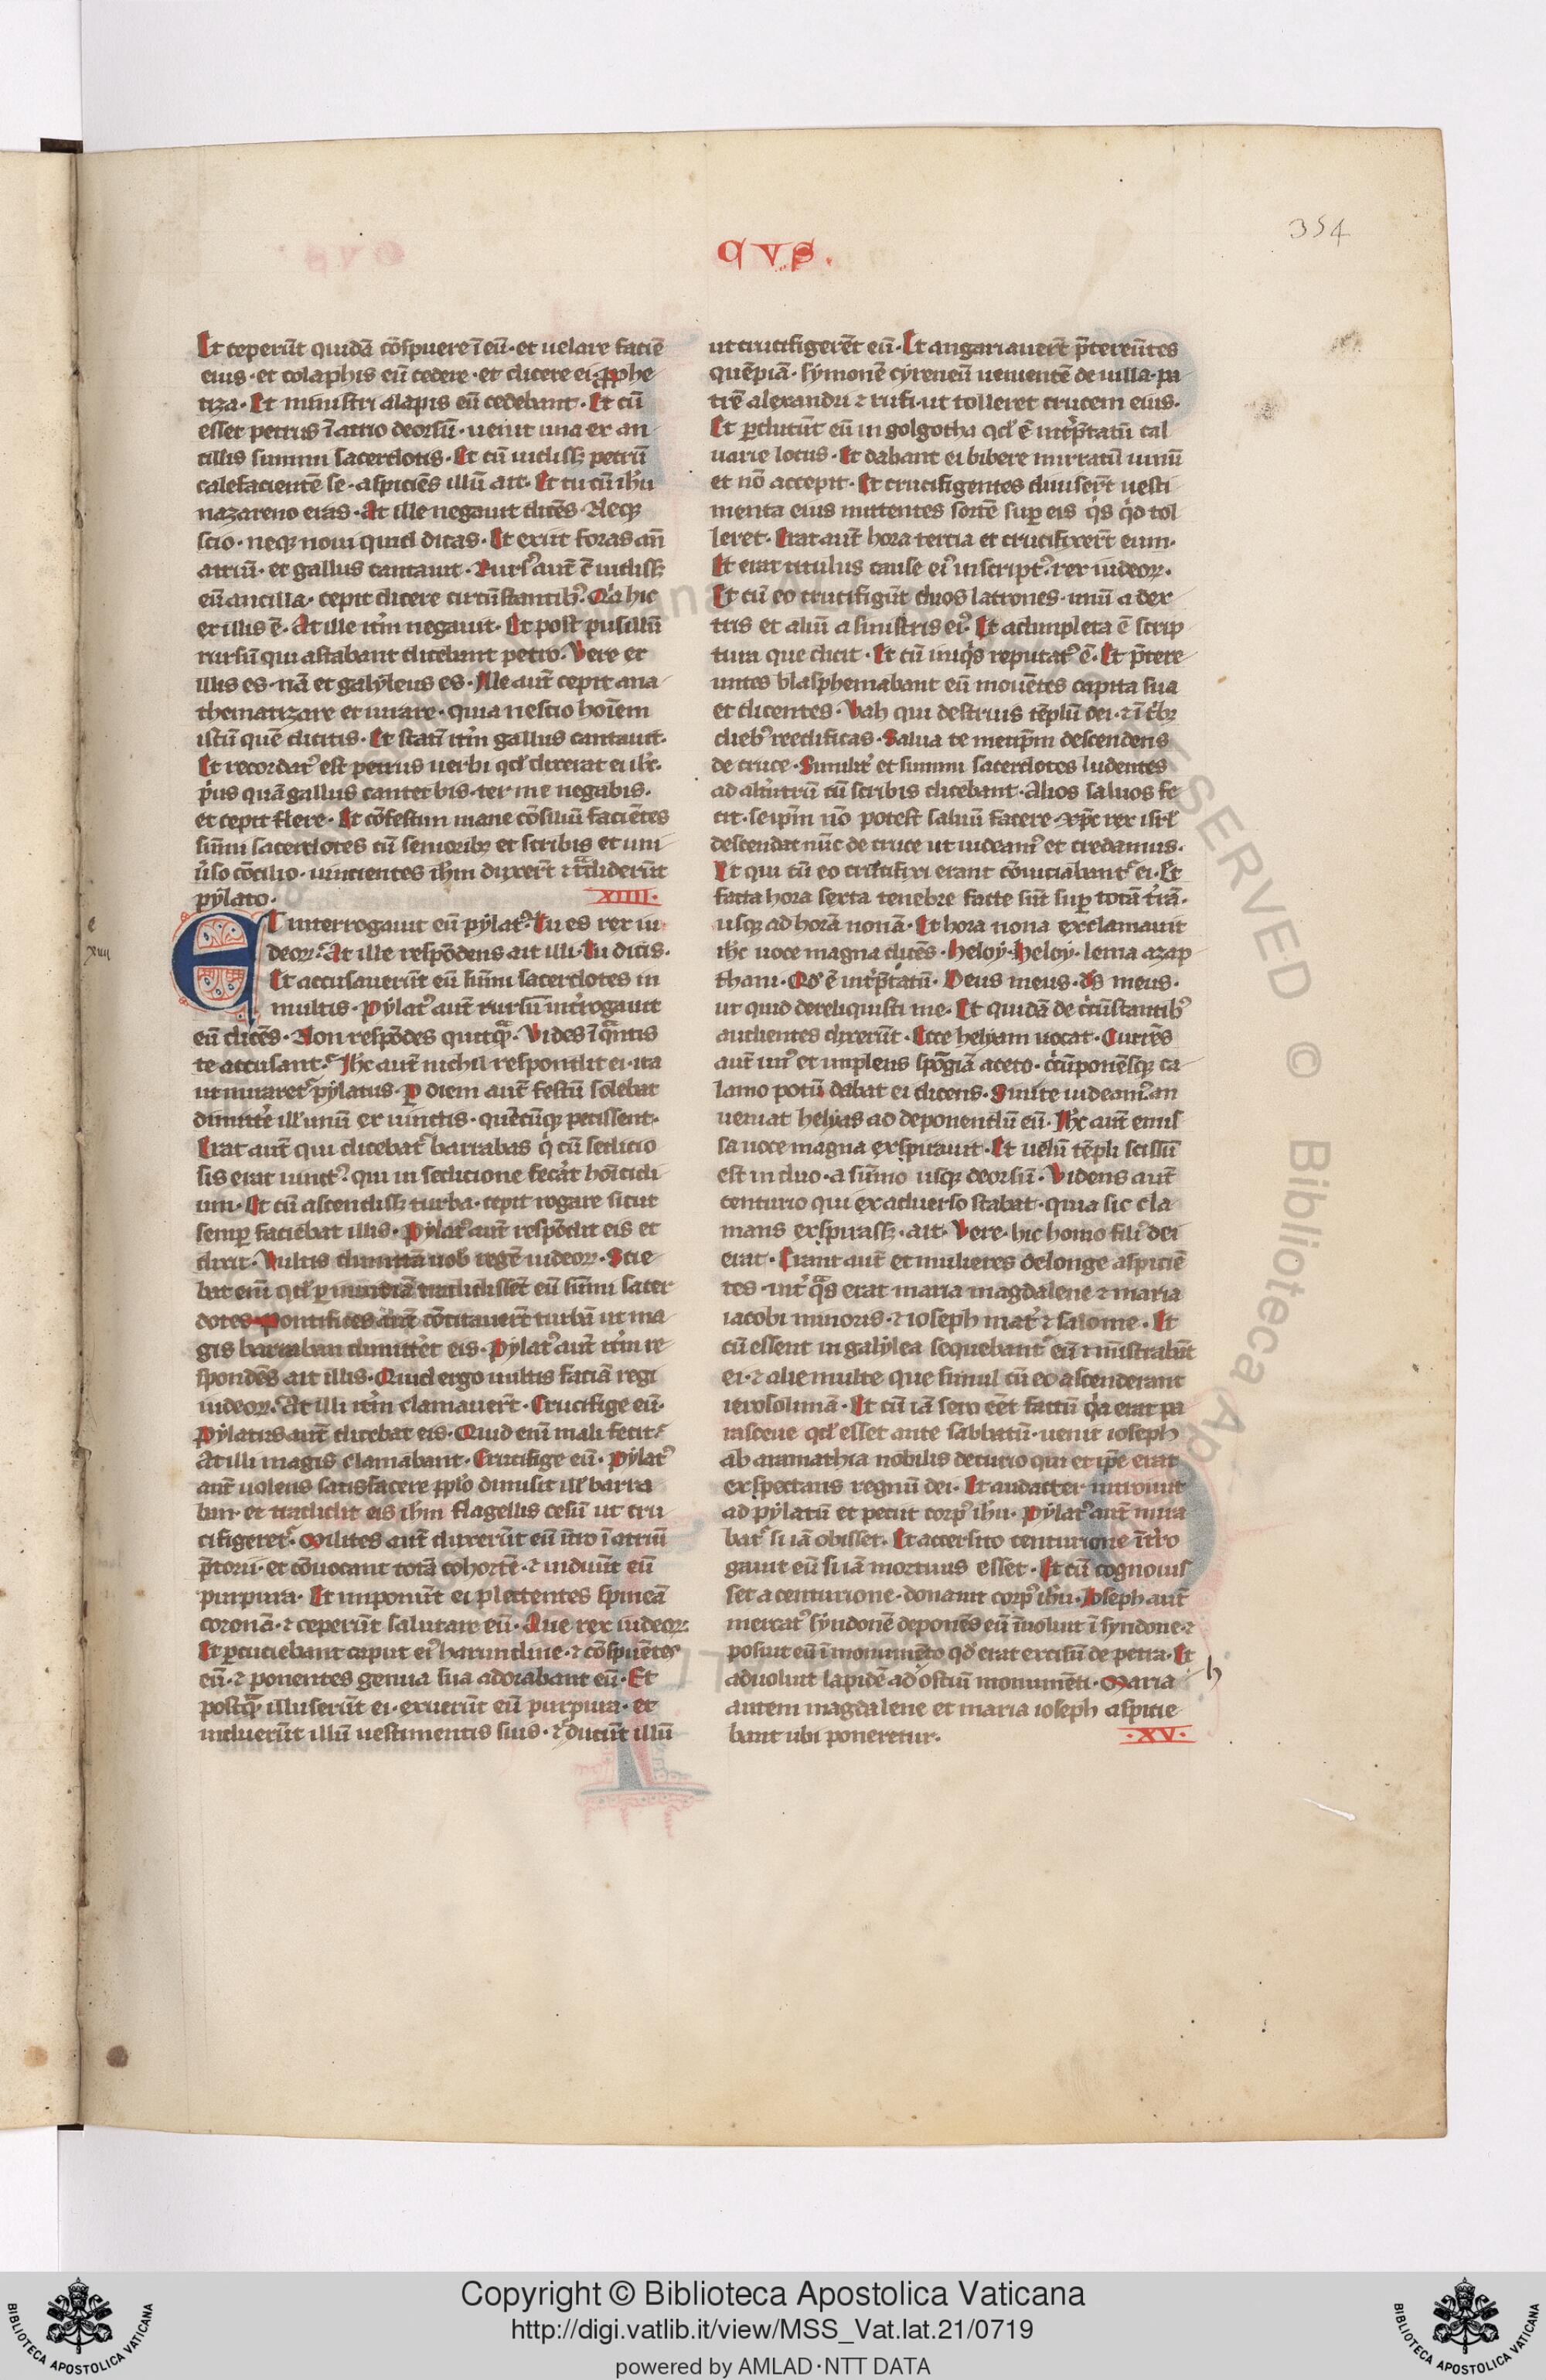 354
CVS.
Et ceperūt quidā cōspuere ī eū· et uelare faciē
eius· et colaphis eū cedere· et dicere ei· ꝓphe
tiza· Et ministri alapis eū cedebant· Et cū
esset petrus ī atrio deorsū· uenit una ex an
cillis summi sacerdotis· Et cū uidissꝫ petrū
calefacientē se· aspiciēs illū ait· Et tu cū ihu
nazareno eras· At ille negauit dicēs· Neqꝫ
scio· neqꝫ noui quid dicas· Et exiit foras an̄
atriū· et gallus cantauit· Rursꝰ aut̄ c̄ uidissꝫ
eū ancilla· cepit dicere circūstantibꝰ· Qͥa hic
ex illis ē· At ille itͥm negauit· Et post pusillū
rursū qui astabant dicebant petro· Vere ex
illis es· nā et galyleus es· Ille aut̄ cepit ana
thematizare et iurare· quia nescio hoīem
istū quē dicitis· Et statī itͥm gallus cantauit·
Et recordatꝰ est petrus uerbi qd̄ dixerat ei ihc·
pͥus quā gallus cantet bis· ter me negabis·
et cepit flere· Et cōfestim mane cōsiliū faciētes
sūmi sacerdotes cū senioribꝫ et scribis et uni
ūso cōcilio· uincientes ihm duxer̄t ⁊ tͣdiderūt
pylato·
XIIII·
e
xiiii
ET interrogauit eū pylatꝰ· Tu es rex iu
deoꝝ· At ille respōdens ait illi· Tu dicis·
Et accusauerūt eū sūmi sacerdotes in
multis· Pylatꝰ aut̄ rursū intͥrogauit
eū dicēs· Non respōdes quicqͣ· Vides ī qͣntis
te accusant· Ihc aut̄ nichil respondit ei· ita
ut miraret᷑ pylatus· ꝑ diem aut̄ festū solebat
dimittͥe ill̄ unū ex uinctis· quēcūqꝫ petissent·
Erat aut̄ qui dicebat᷑ barrabas qͥ cū sedicio
sis erat uinctꝰ· qui in sedicione fecͥat homicidi
um· Et cū ascendissꝫ turba· cepit rogare sicut
semꝑ faciebat illis· Pylatꝰ aut̄ respōdit eis et
dixit· Vultis dimittā uob regē iudeoꝝ· Scie
bat eni qd̄ ꝑ inuidiā tradidissēt eū sūmi sacer
dotes· Pontifices aut̄ cōcitauer̄t turbā ut ma
gis barraban dimittͥet eis· Pylatꝰ aut̄ itͥm re
spondēs ait illis· Quid ergo uultis faciā regi
iudeoꝝ· At illi itͥm clamauer̄t· Crucifige eū·
Pylatus aut̄ dicebat eis· Quid enī mali fecit·
At illi magis clamabant· Crucifige eū· Pylatꝰ
aut̄ uolens satisfacere pplo dimisit ill̄ barra
ban· et tradidit eis ihm flagellis cesū ut cru
cifigeret᷑· Milites aut̄ duxerūt eū ītro ī atriū
p̄torii· et cōuocant totā cohortē· ⁊ induūt eū
purpura· Et imponūt ei plectentes spineā
coronā· ⁊ ceperūt salutare eū· Aue rex iudeoꝝ·
Et ꝑcuciebant caput eiꝰ harundine· ⁊ cōspuētes
eū· ⁊ ponentes genua sua adorabant eū· Et
postqͣ illuserūt ei· exuerūt eū purpura· et
induerūt illū uestimentis suis· ⁊ ducūt illū
ut crucifigerēt eū· Et angariauer̄t p̄tereūtes
quēpiā· symonē cyreneū uenientē de uilla· pa
trē alexandri ⁊ rufi· ut tolleret crucem eius·
Et ꝑducūt eū in golgotha qd̄ ē intͥp̄tatū cal
uarie locus· Et dabant ei bibere mirratū uinū
et nō accepit· Et crucifigentes diuiser̄t uesti
menta eius mittentes sortē suꝑ eis qͥs qͥd tol
leret· Erat aut̄ hora tercia et crucifixer̄t eum·
Et erat titulus cause eiꝰ inscriptꝰ· rex iudeoꝝ·
Et cū eo crucifigūt duos latrones· unū a dex
tris et aliū a sinistris eiꝰ· Et adimpleta ē scrip
tura que dicit· Et cū iniqͥs reputatꝰ ē· Et p̄tere
untes blasphemabant eū mouētes capita sua
et dicentes· Vah qui destruis tēplū dei· ⁊ ī tͥbꝫ
diebꝰ reedificas· Salua te metip̄m descendens
de cruce· Similitͥ et summi sacerdotes ludentes
ad altͥutrū cū scribis dicebant· Alios saluos fe
cit· seip̄m nō potest saluū facere· xp̄c rex isrl̄
descendat nūc de cruce ut uideamꝰ et credamus·
Et qui cū eo crucifixi erant cōuiciabant᷑ ei· Et
facta hora sexta tenebre facte sūt suꝑ totā t̄rā·
usqꝫ ad horā nonā· Et hora nona exclamauit
ihc uoce magna dicēs· Heloy· Heloy· lema azap
thani· Qd̄ ē intͥp̄tatū· Deus meus· ds̄ meus·
ut quid dereliquisti me· Et quidā de cͥcūstantibꝰ
audientes dixerūt· Ecce helyam uocat· Currēs
aut̄ unꝰ et implens spōgiā aceto· cͥcūponēsqꝫ ca
lamo potū dabat ei dicens· Sinite uideamꝰ an
ueniat helyas ad deponendū eū· Ihc aut̄ emis
sa uoce magna exspirauit· Et uelū tēpli scissū
est in duo· a sūmo usqꝫ deorsū· Videns aut̄
centurio qui ex aduerso stabat· quia sic cla
mans exspirassꝫ· ait· Vere· hic homo filiꝰ dei
erat· Erant aut̄ et mulieres de longe aspiciē
tes· intͥ qͣs erat maria magdalene ⁊ maria
iacobi minoris· ⁊ ioseph matͥ ⁊ salome· Et
cū essent in galylea sequebant᷑ eū ⁊ mīstrabāt
ei· ⁊ alie multe que simul cū eo ascenderant
ierosolimā· Et cū iā sero eēt factū qͥa erat pa
rasceue qd̄ esset ante sabbatū· uenit ioseph
ab aramathia nobilis decurio qui et ip̄e erat
exspectans regnū dei· Et audacter introiuit
ad pylatū et peciit corpꝰ ihu· Pylatꝰ aut̄ mira
bat᷑ si iā obisset· Et accersito centurione ītͥro
gauit eū si iā mortuus esset· Et cū cognouis
set a centurione· donauit corpꝰ ihu· Ioseph aut̄
mercatꝰ syndonē deponēs eū īuoluit ī syndone ⁊
posuit eū ī monumēto qd̄ erat excisū de petra· Et
aduoluit lapidē ad ostiū monumēti· Maria
h
autem magdalene et maria ioseph aspicie
bant ubi poneretur·
·XV·
Copyright © Biblioteca Apostolica Vaticana
http://digi.vatlib.it/view/MSS_Vat.lat.21/0719
powered by AMLAD·NTT DATA
BIBLIOTECA APOSTOLICA VATICANA
BIBLIOTECA APOSTOLICA VATICANA